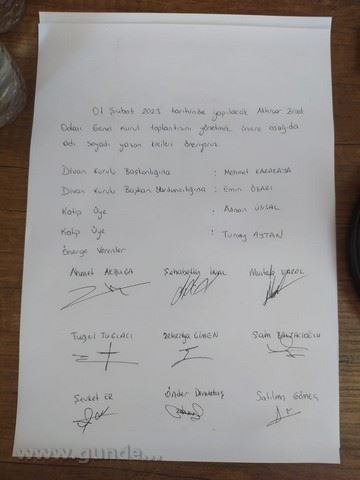 01 Şubat 2023 tarihinde yapılacak Akhisar Ziraat
Odası Genel Kurul toplantısını yönetmek üzere aşağıda
adı soyadı yazan kişileri öneriyoruz.
Divan Kurulu Başkanlığına : Mehmet KARAKAYA
Divan Kurulu Başkan Yardımcılığına : Emin ÖZARI
Katip Üye : Adnan ÜNSAL
Katip Üye : Tuncay AYTAN
Önerge Verenler
Ahmet AKBUĞA Şehabettin Mustafa
Tuğrul TUĞLACI Zekeriya Sami
Şevket ER Önder Salman
www.gunde...